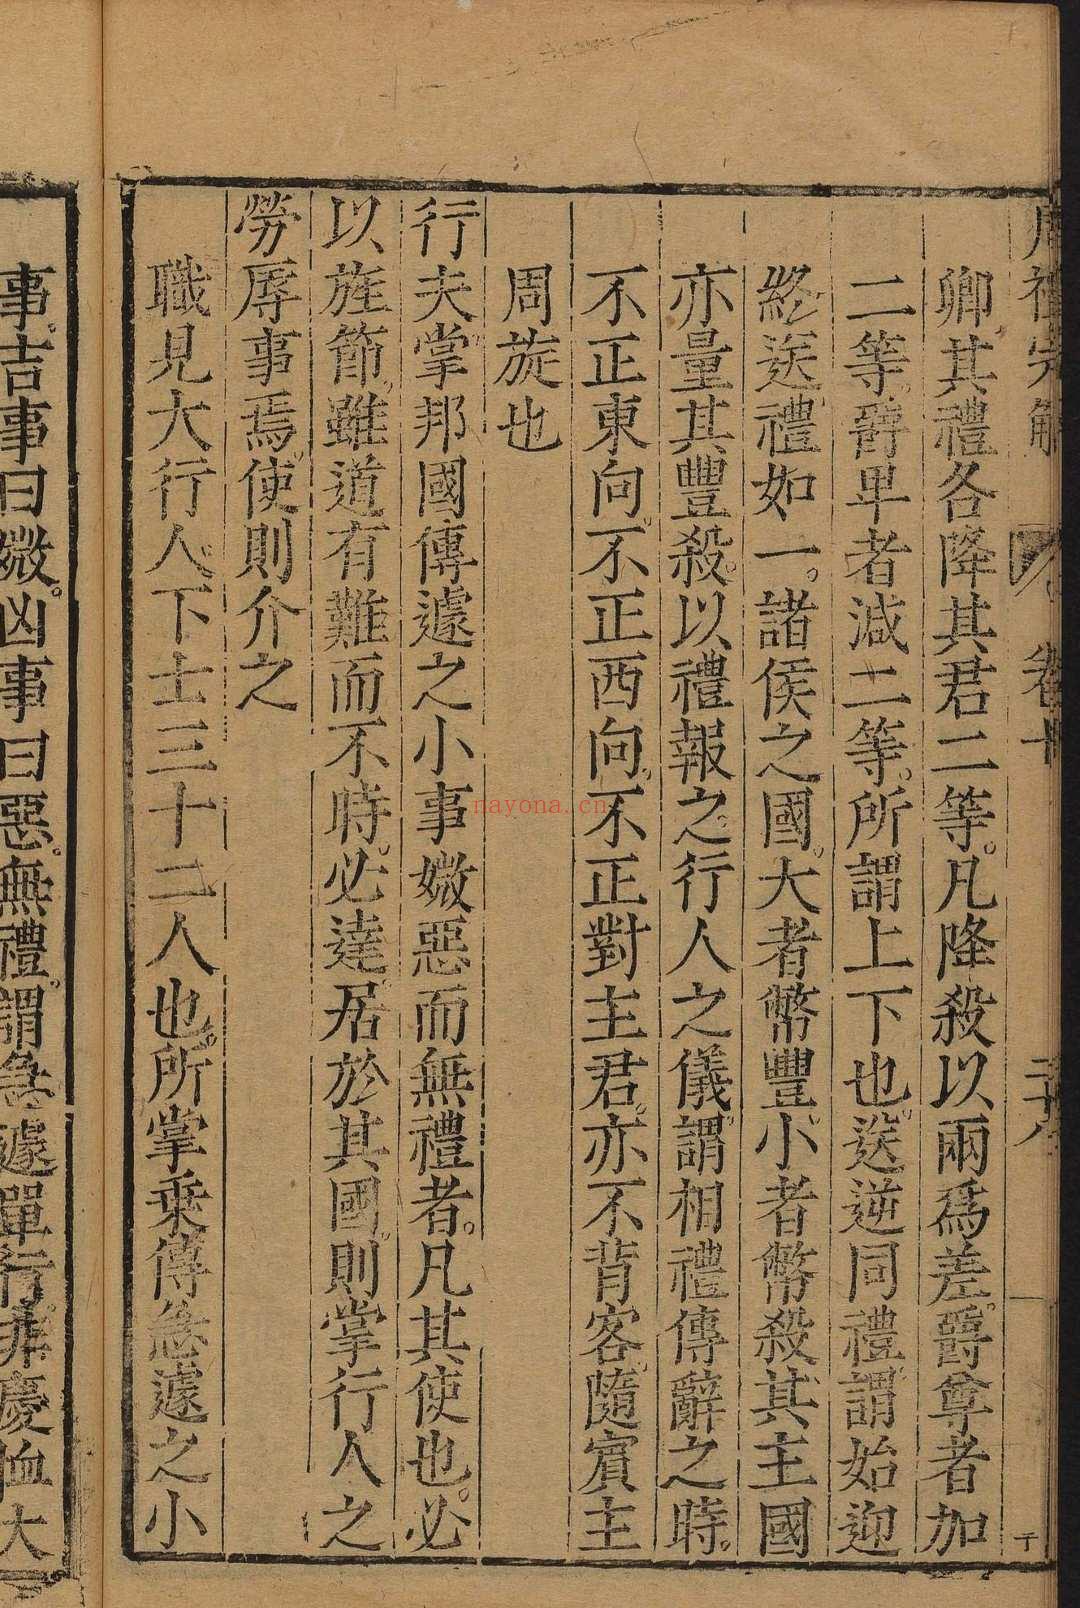 周禮完解
卷十
二十八
卿其禮各降其君二等。凡降殺以兩爲差。爵尊者加
二等。爵卑者減二等。所謂上下也。送逆同禮。謂始迎
終送禮如一。諸侯之國。大者幣豐。小者幣殺。其主國
亦量其豐殺。以禮報之行人之儀。謂相禮傳辭之時。
不正東向。不正西向。不正對主君。亦不背客。隨賓主
周旋也
行夫掌邦國傳遽之小事媺惡而無禮者。凡其使也。必
以旌節。雖道有難而不時。必達。居於其國。則掌行人之
勞辱事焉。使則介之
職見大行人。下士三十二人也。所掌乗傳急遽之小
事。吉事曰媺。凶事曰惡。無禮。謂急遽單行。非慶恤大
nayona.cn